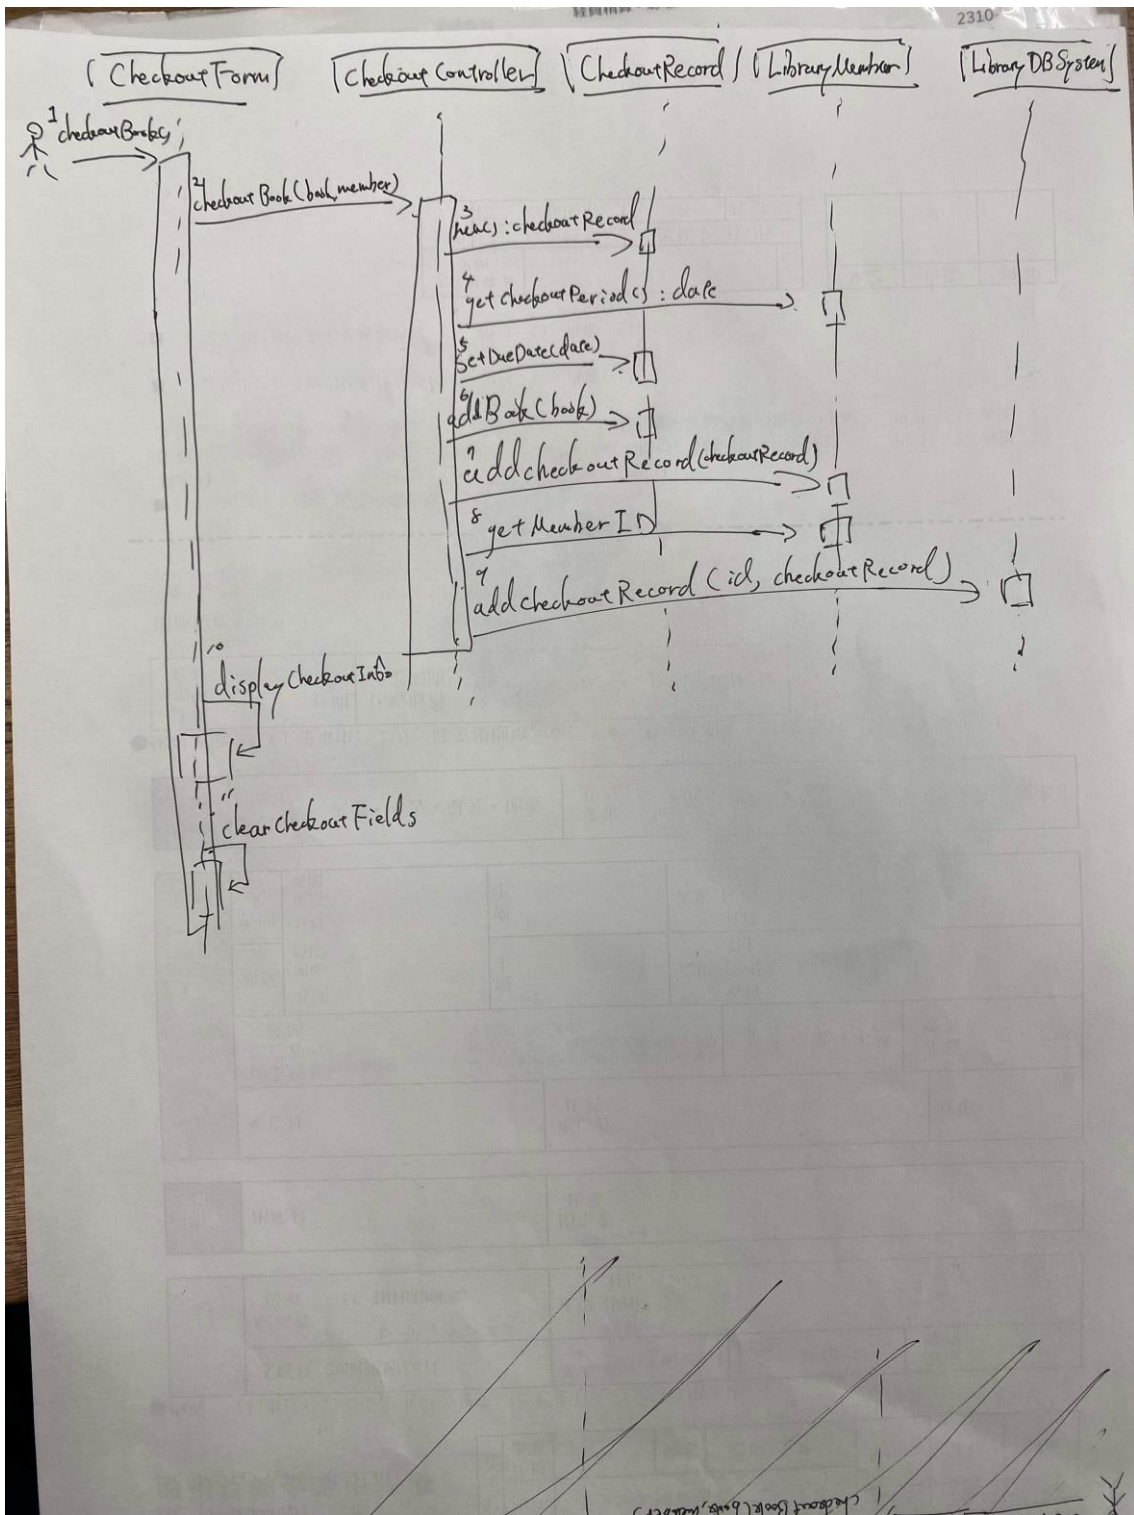 2310-
CheckoutForm
Checkout Controller
CheckoutRecord
LibraryMember
LibraryDBSystem
1 checkoutBook()
2 checkoutBook(book, member)
3 new() : checkoutRecord
4 getCheckoutPeriod() : date
5 SetDueDate(date)
6 addBook(book)
7 addcheckoutRecord(checkoutRecord)
8 getMemberID
9 addcheckoutRecord(id, checkoutRecord)
10 displayCheckoutInfo
11 clearCheckoutFields
checkoutBook(book, member)